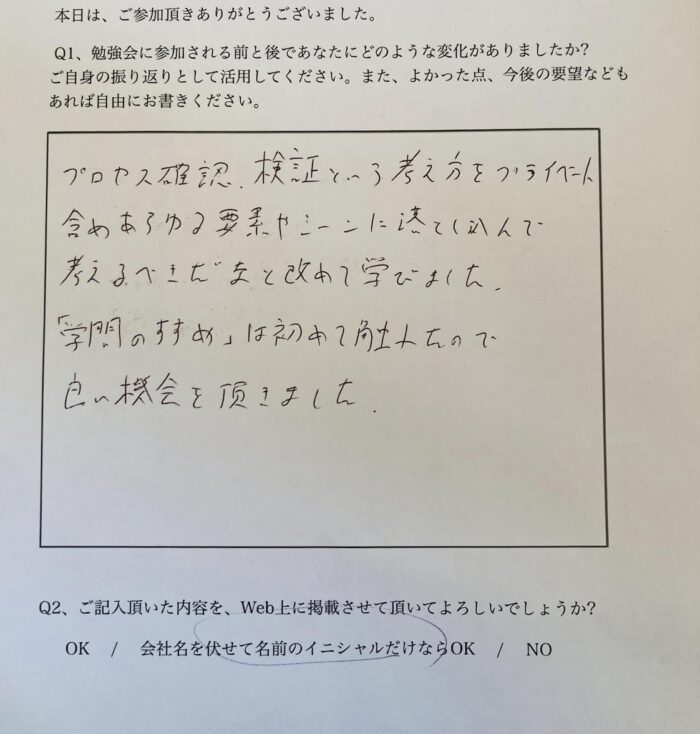 本日は、ご参加頂きありがとうございました。
Q1、勉強会に参加される前と後であなたにどのような変化がありましたか?
ご自身の振り返りとして活用してください。また、よかった点、今後の要望なども
あれば自由にお書きください。
プロセス確認、検証という考え方をプライベート
含めあらゆる要素やシーンに落とし込んで
考えるべきだなと改めて学びました。
「学問のすすめ」は初めて触れたので
良い機会を頂きました。
Q2、ご記入頂いた内容を、Web上に掲載させて頂いてよろしいでしょうか?
OK / 会社名を伏せて名前のイニシャルだけならOK / NO